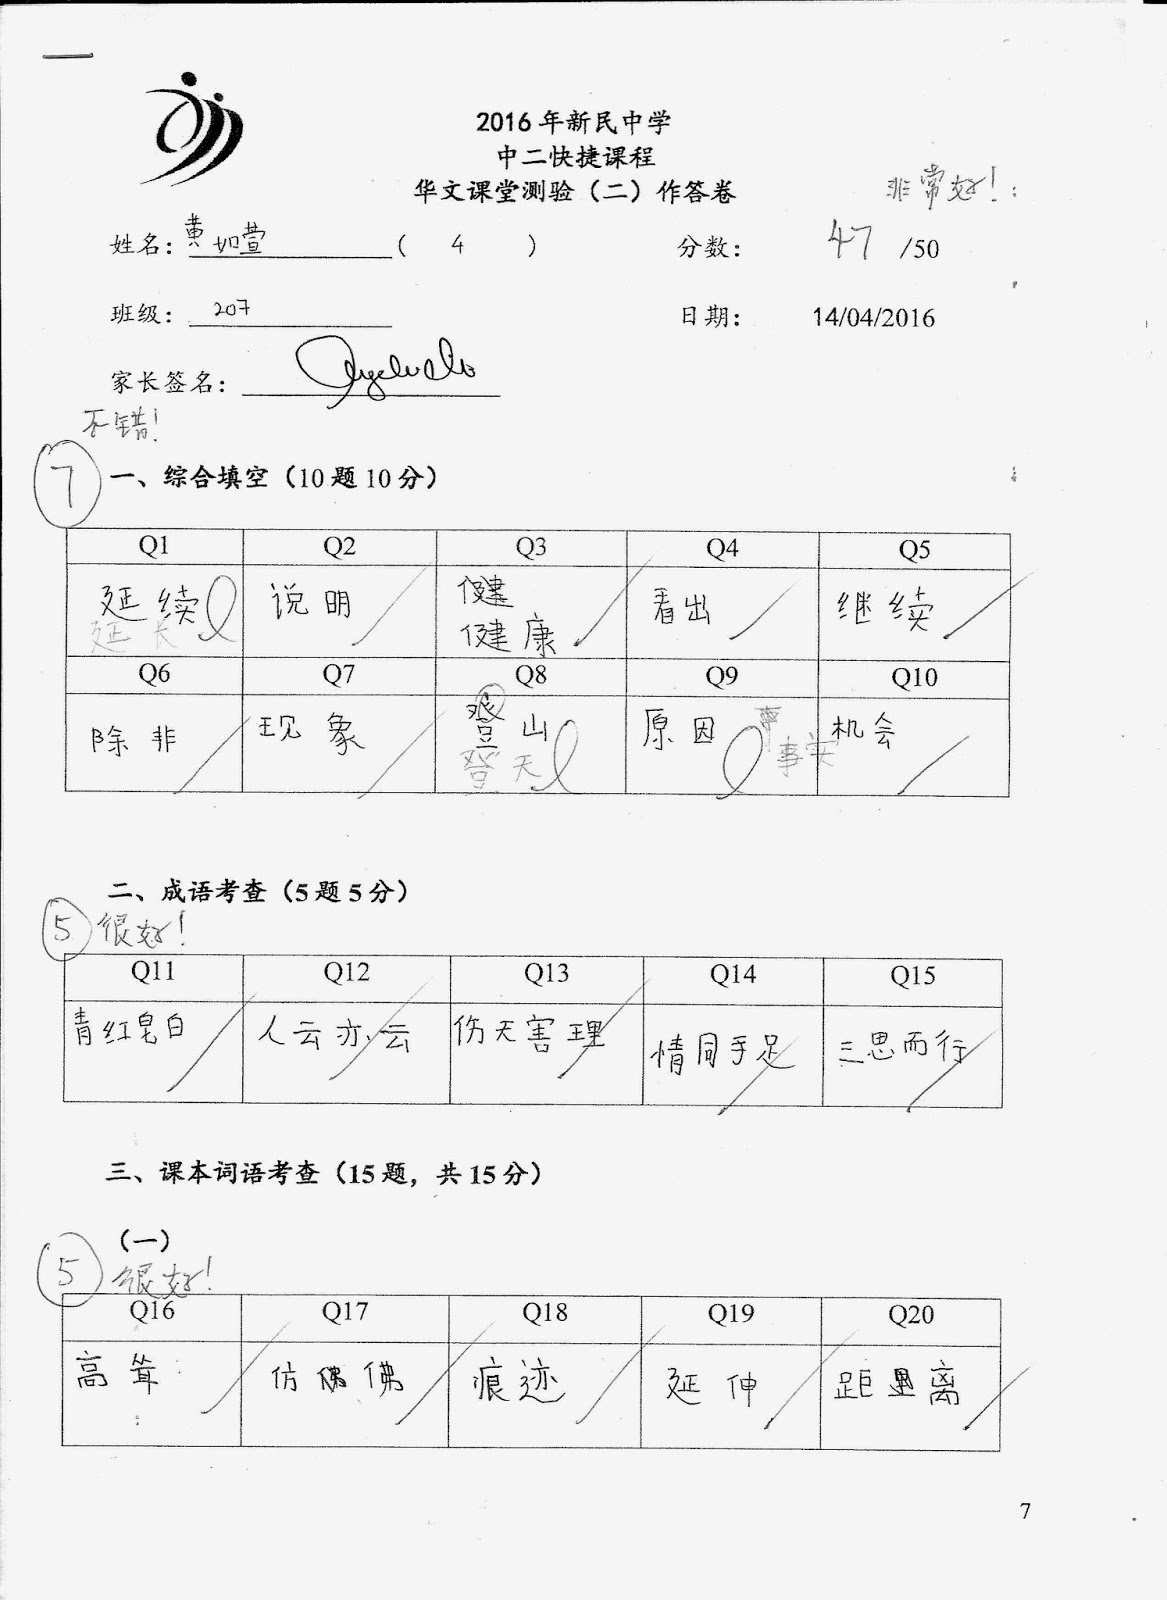 2016 年新民中学
中二快捷课程
华文课堂测验（二）作答卷
非常好！
姓名：黄如萱 （ 4 ） 分数： 47 /50
班级： 207 日期： 14/04/2016
家长签名：
不错！
7 一、综合填空（10 题 10 分）
Q1 Q2 Q3 Q4 Q5
延续 说明 健 看出 继续
延长 健康
Q6 Q7 Q8 Q9 Q10
除非 现象 登山 原因 机会
登天 事实
二、成语考查（5 题 5 分）
5 很好！
Q11 Q12 Q13 Q14 Q15
青红皂白 人云亦云 伤天害理 情同手足 三思而行
三、课本词语考查（15 题，共 15 分）
（一）
5 很好！
Q16 Q17 Q18 Q19 Q20
高耸 仿佛 痕迹 延伸 距离
7